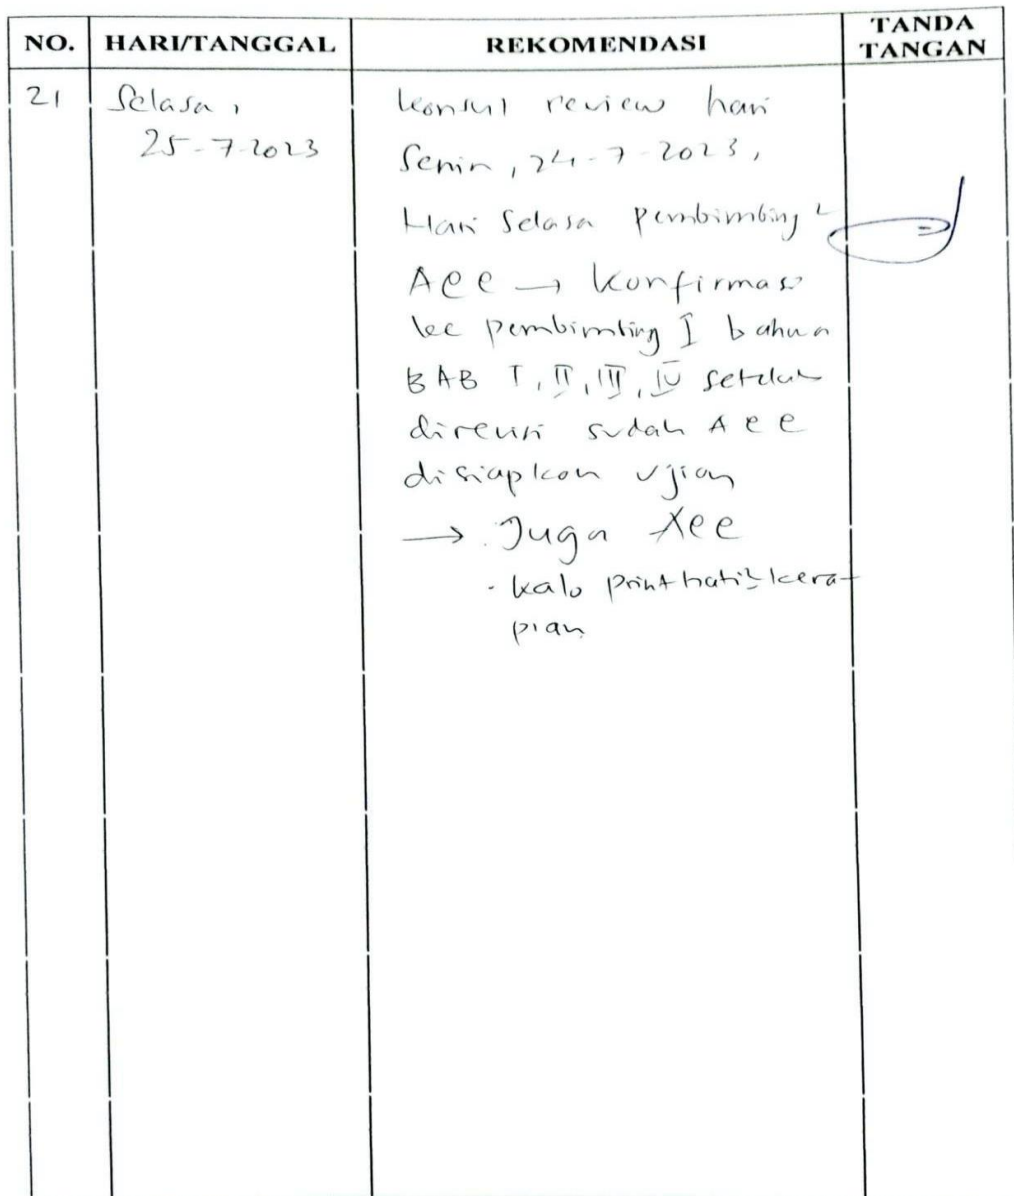 NO. HARI/TANGGAL REKOMENDASI TANDA TANGAN
21 Selasa, konsul review hari
25-7-2023 Senin, 24-7-2023,
Hari Selasa pembimbing 2
Acc → konfirmasi
ke pembimbing I bahwa
BAB I, II, III, IV setelah
direvisi sudah Acc
disiapkan ujian
→ Juga Acc
- kalo print hati2 kera-
pian